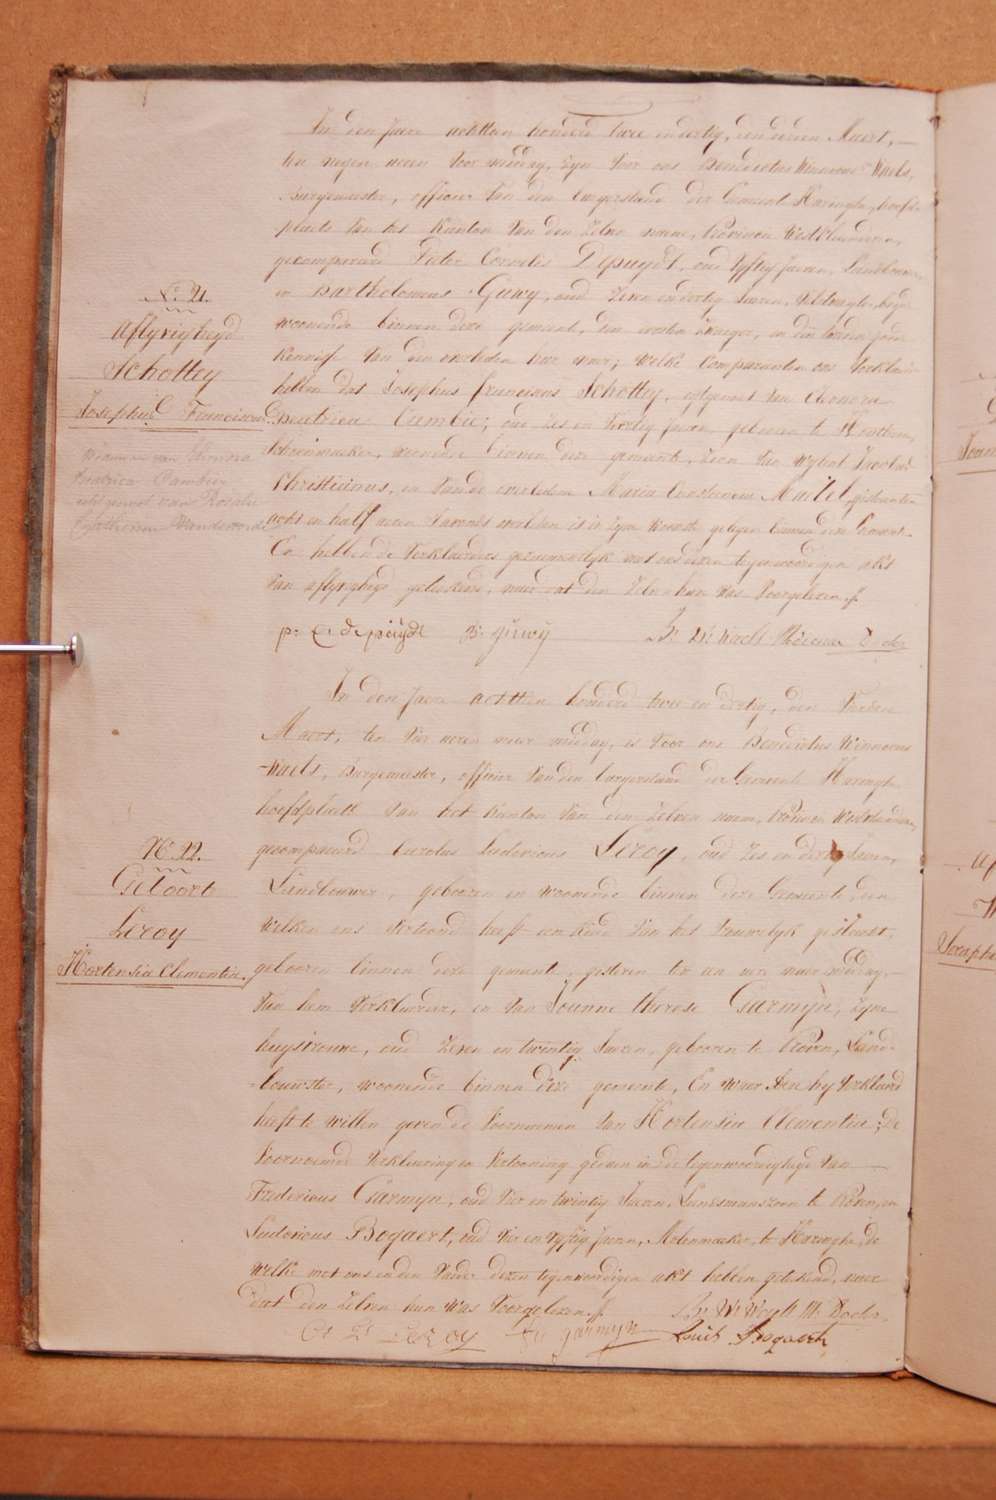 In den Jaere achttien honderd twee en dertig, den derden Maert,
ten negen uren voor middag, zyn voor ons Benedictus Winnocus Waels,
Burgemeester, officier van den burgerstand der Gemeente Haringhe, hoofd-
plaets van het kanton van den zelve name, Provincie Westvlaenderen,
gecompareerd Pieter Cornelis Depuydt, oud vyftig jaeren, Landbouwer,
en Bartholomeus Guwy, oud zeven en dertig Jaeren, beyde
woonende binnen deze gemeente, den eersten zwager, en den tweeden goede
kennisse van den overleden hier naer; welke Comparanten ons verklaert
hebben dat Josephus franciscus Schottey, echtgenoot van Eleonora
Beatrica Cambie; oud zes en veertig Jaeren, geboren te
woonende binnen deze gemeente, zoon van wylent
Christianus, en van de overledene Maria Constantia Mattel, gisteren ten
acht en half uren s'avonds overleden is in zyne woonste gelegen binnen deze Gemeente.
En hebben de verklaerders gezamentlyk met ons dezen tegenwoordigen akt
van aflyvigheyd geteekend, naer dat den zelven hun was voorgelezen.
N.° 21.
Aflyvigheyd
Schottey
Josephus Franciscus
weduwnaer van Eleonora
Beatrica Cambier
echtgenoot van Rosalie
Catharina Vandevoorde
p: C: depuydt B: guwy B: W: Waels
In den Jaere achttien honderd twee en dertig, den vierden
Maert, ten vier uren naer middag, is voor ons Benedictus Winnocus
Waels, Burgemeester, officier van den burgerstand der Gemeente Haringhe
hoofdplaets van het kanton van den zelven naem, Provincie Westvlaenderen,
gecompareerd Carolus Ludovicus Leroy, oud zes en dertig Jaeren,
Landbouwer, gebooren en woonende binnen deze Gemeente, den
welken ons vertoond heeft een kind van het vrouwelyk geslacht,
gebooren binnen deze gemeente, gisteren ten een ure naer middag,
van hem verklaerder, en van Joanne Therese Garmyn, zyne
huysvrouwe, oud zeven en twintig Jaeren, gebooren te Proven, Land-
bouwster, woonende binnen deze gemeente, En waer aen hy verklaerd
heeft te willen geven de voornaemen van Hortensia Clementia; De
voornoemde verklaering en vertooning gedaen in de tegenwoordigheyd van
Fredericus Garmyn, oud vier en twintig Jaeren, Landsmanszoon te Proven, en
Ludovicus Bogaert, oud vier en vyftig Jaeren, Molenmaeker, te Haringhe, de
welke met ons en den vader dezen tegenwoordigen akt hebben geteekend, naer
dat den zelven hun was voorgelezen.
N.° 22.
Geboorte
Leroy
Hortensia Clementia.
C: L: Leroy Fr: garmyn Louis Bogaert